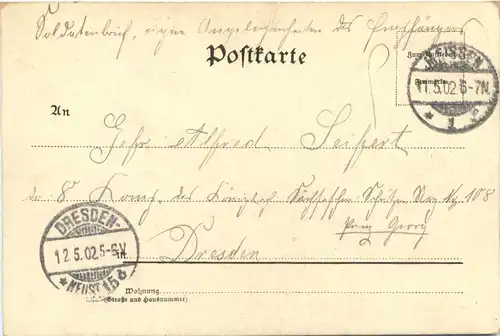 Soldatenbrief, eigne Angelegenheiten des Empfängers
Postkarte
Zum Aufkleben
Freimarke
MEISSEN
11.5.02.6-7N.
* 1 *
An
Gefr Alfred Seifert
der 8. Komp. des Königlich Sächsischen Schützen Reg. No 108
Prinz Georg
Dresden
DRESDEN-
12.5.02.5-6V
* NEUST. 15 d
in
Wohnung
(Straße und Hausnummer)